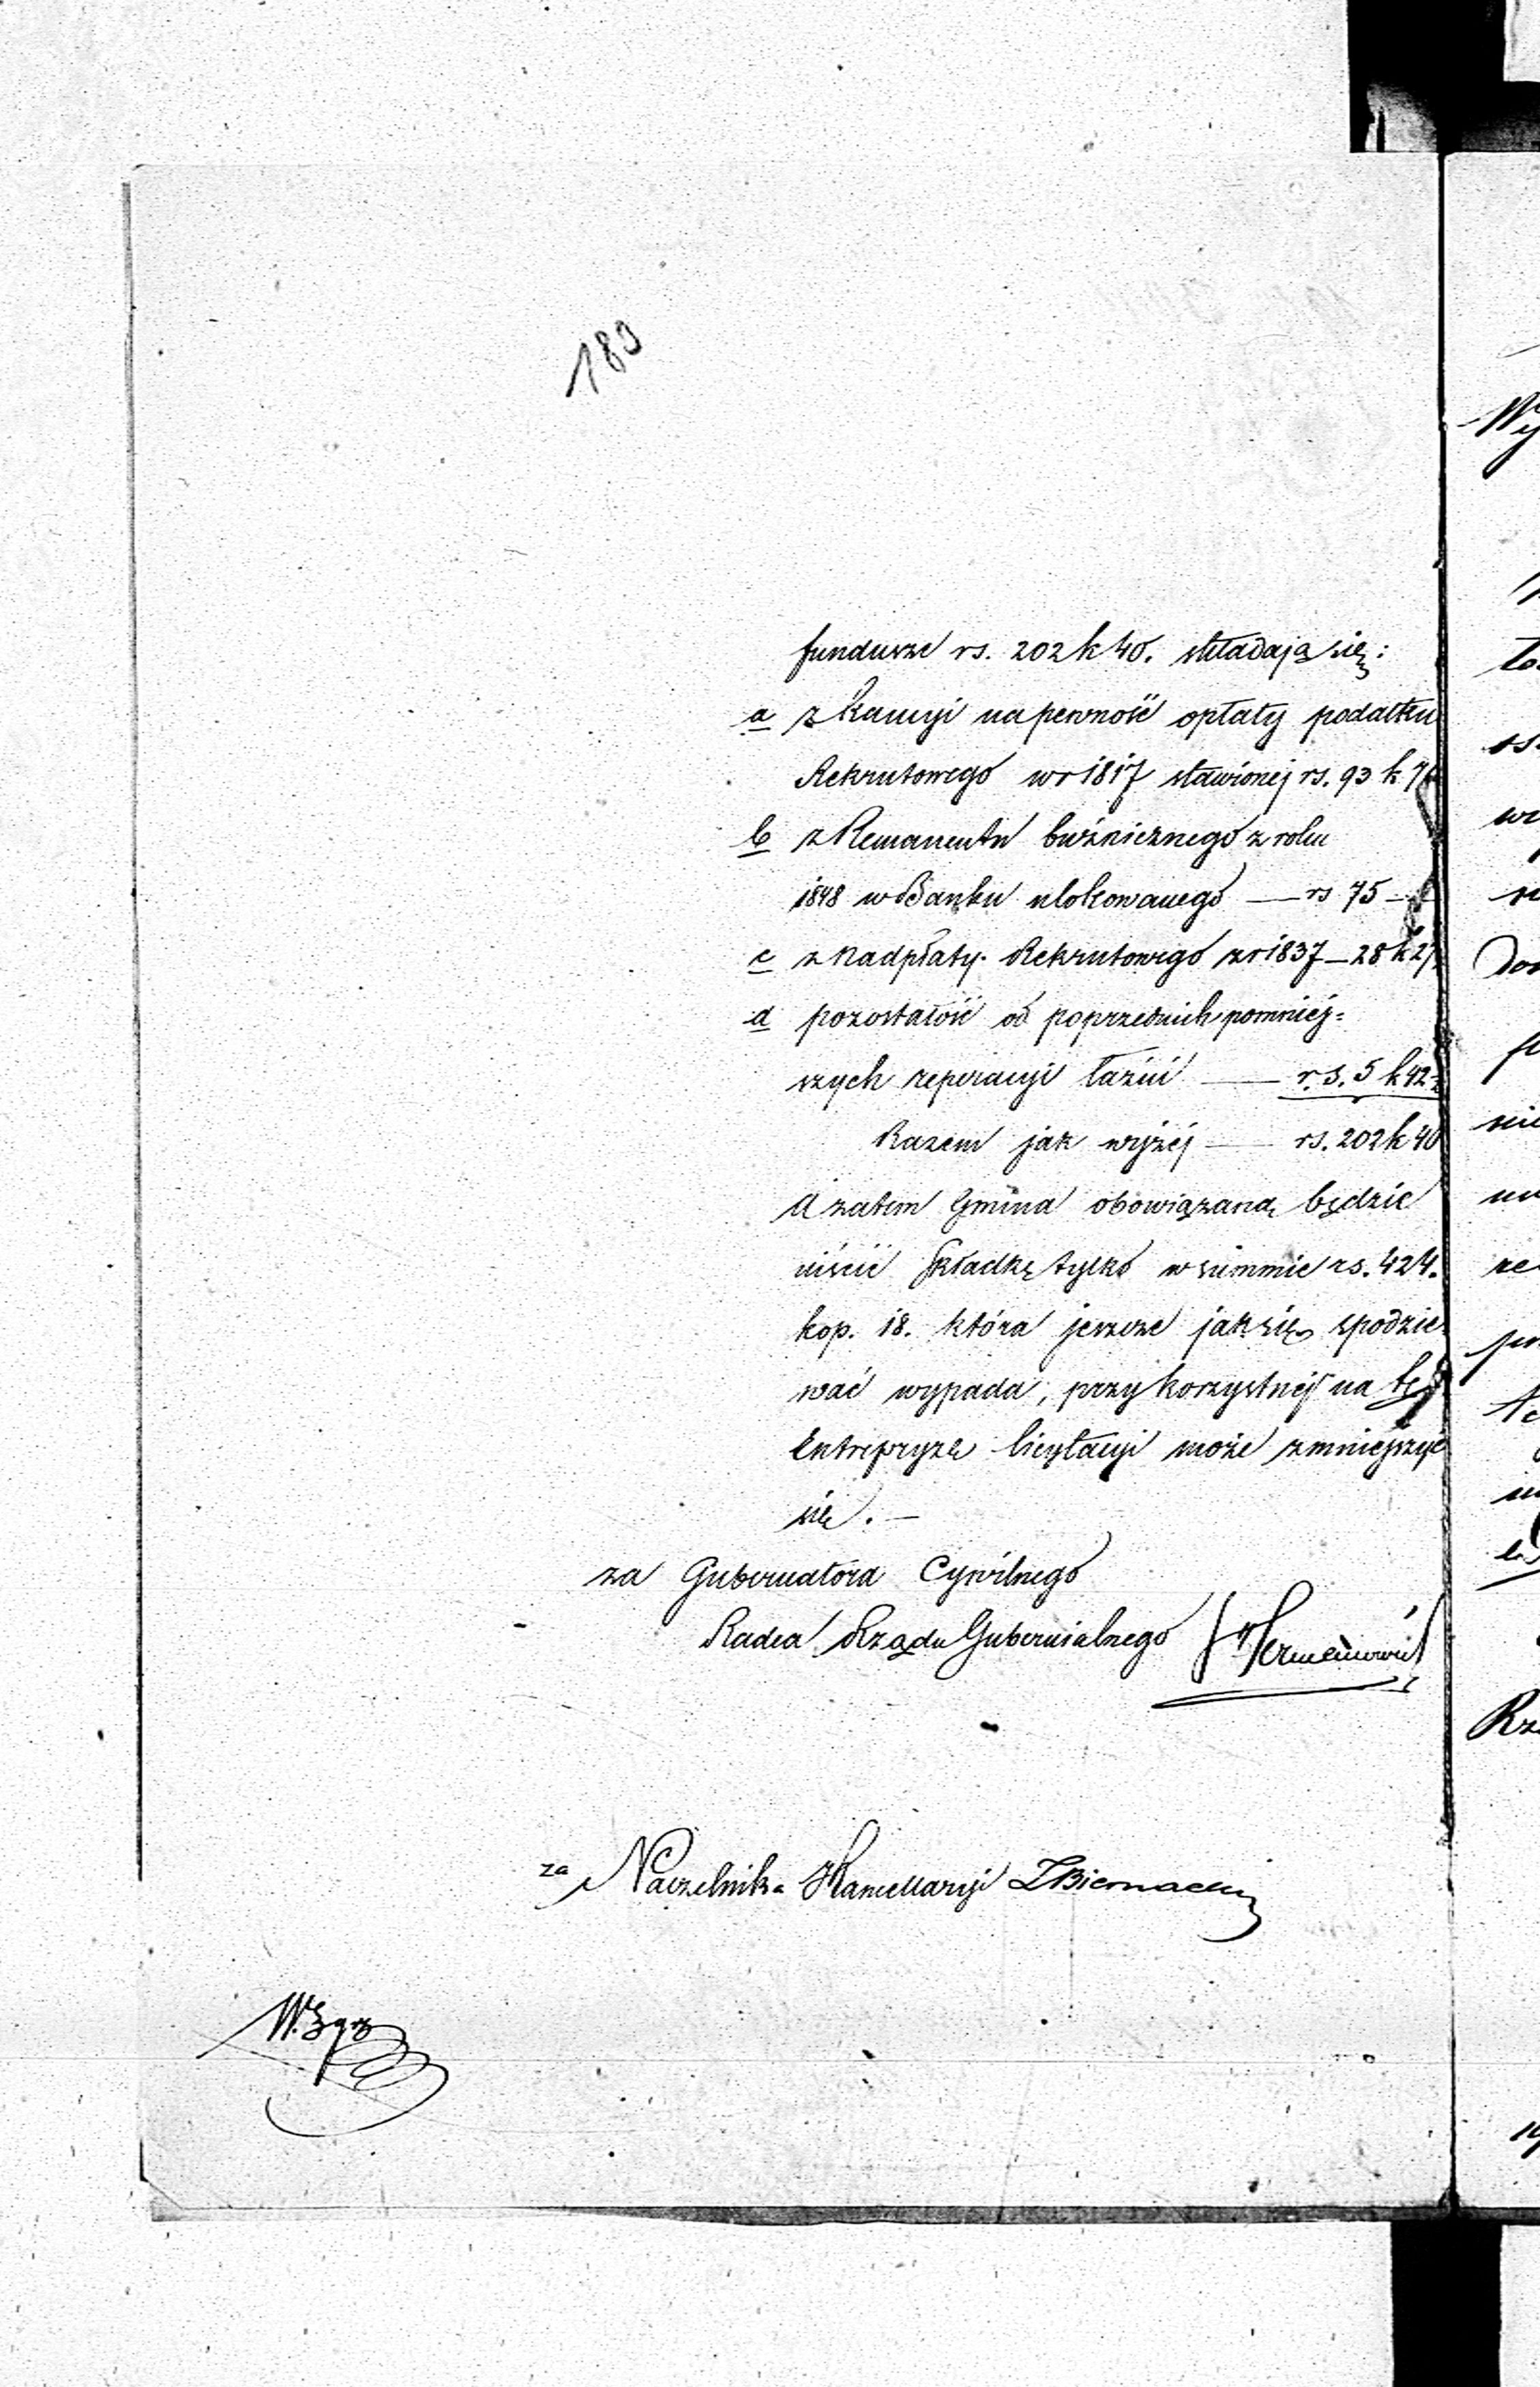 180
fundusze rs. 202 k 40. składają się:
a z Kaucyi na pewność opłaty podatku
Rekrutowego w r 1817 stawionej rs. 93 k
b z Remanentu bużnicznego z roku
1848 w Banku ulokowanego — rs 75 —
c z Nadpłaty Rekrutowego z r 1837 — 28 k 27
d pozostałość od poprzednich pomniej=
szych reperacyi łaźni — rs. 5 k 42
Razem jak wyżej — rs. 202 k 40
A zatem Gmina obowiązaną będzie
uiścić składkę tylko w summie rs. 424.
kop. 18. która jeszcze jak się spodzie
wać wypada, przy korzystnéj na tę
Entrepryzę licytacyi może zmniejszyć
się. —
za Gubernatora Cywilnego
Radca Rządu Gubernialnego
za Naczelnika Kancellaryi Biernacki